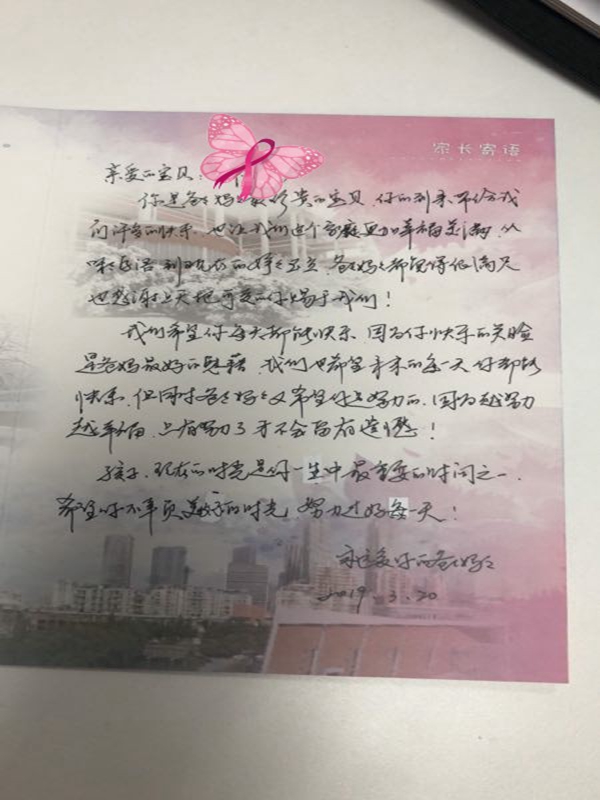 家长寄语
亲爱的宝贝:
你是爸爸妈妈最珍贵的宝贝,你的到来带给我
们许多的快乐,也让我们这个家庭更加幸福美满,从
咿呀学语到现在的婷婷玉立,爸爸妈妈都觉得很满足
也感谢上天把可爱的你赐予我们!
我们希望你每天都能快乐,因为你快乐的笑脸
是爸妈最好的慰藉,我们也希望未来的每一天你都能
快乐,但同时爸爸妈妈又希望你是努力的,因为越努力
越幸福,只有努力了才不会留有遗憾!
孩子,现在的时光是你一生中最重要的时间之一,
希望你不辜负美好的时光,努力过好每一天!
永远爱你的爸爸妈妈
2019.3.20